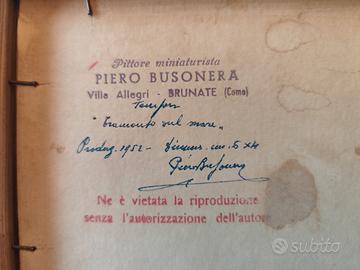 Pittore miniaturista
PIERO BUSONERA
Villa Allegri - BRUNATE (Como)
Tempera
"Tramonto sul mare"
Produz. 1952 - Dimens. cm. 5 x 4
Piero Busonera
Ne è vietata la riproduzione
senza l'autorizzazione dell'autore
subito